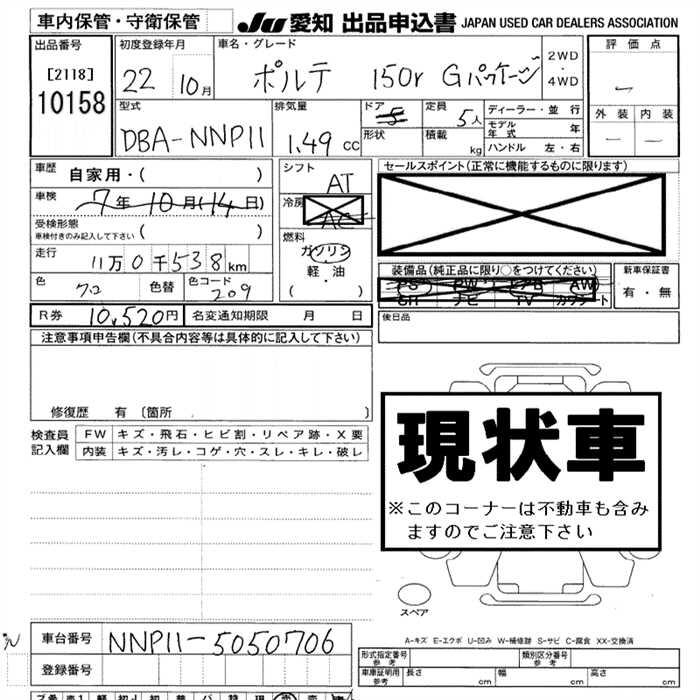 車内保管・守衛保管 JU 愛知 出品申込書 JAPAN USED CAR DEALERS ASSOCIATION
出品番号
[2118]
10158
初度登録年月
22 10月
車名・グレード
ポルテ 150r Gパッケージ
2WD
・
4WD
評価点
外装 内装
型式
DBA-NNP11
排気量
1.49 cc
ドア
5
形状
定員
5人
積載
kg
ディーラー・並行
モデル年式 年
ハンドル 左・右
車歴 自家用・( )
車検 7年10月(14日)
受検形態
車検付きのみ記入して下さい ( )
走行
11万0千538km
色 クロ 色替 色コード 209
シフト
AT
冷房
AC
燃料
ガソリン
軽・油
( )
セールスポイント(正常に機能するものに限ります)
装備品(純正品に限り○をつけてください)
PS PW エアB AW
SR ナビ TV カワシート
新車保証書
有・無
R券 10,520円 名変通知期限 月 日
後日品
注意事項申告欄(不具合内容等は具体的に記入して下さい)
修復歴 有 [箇所 ]
検査員
記入欄
FW キズ・飛石・ヒビ割・リペア跡・X要
内装 キズ・汚レ・コゲ・穴・スレ・キレ・破レ
現状車
※このコーナーは不動車も含み
ますのでご注意下さい
スペア
A-キズ E-エクボ U-凹み W-補修跡 S-サビ C-腐食 XX-交換済
車台番号 NNP11-5050706
登録番号
形式指定番号
参考
類別区分番号
参考
車庫証明用
参考
長さ cm 幅 cm 高さ cm